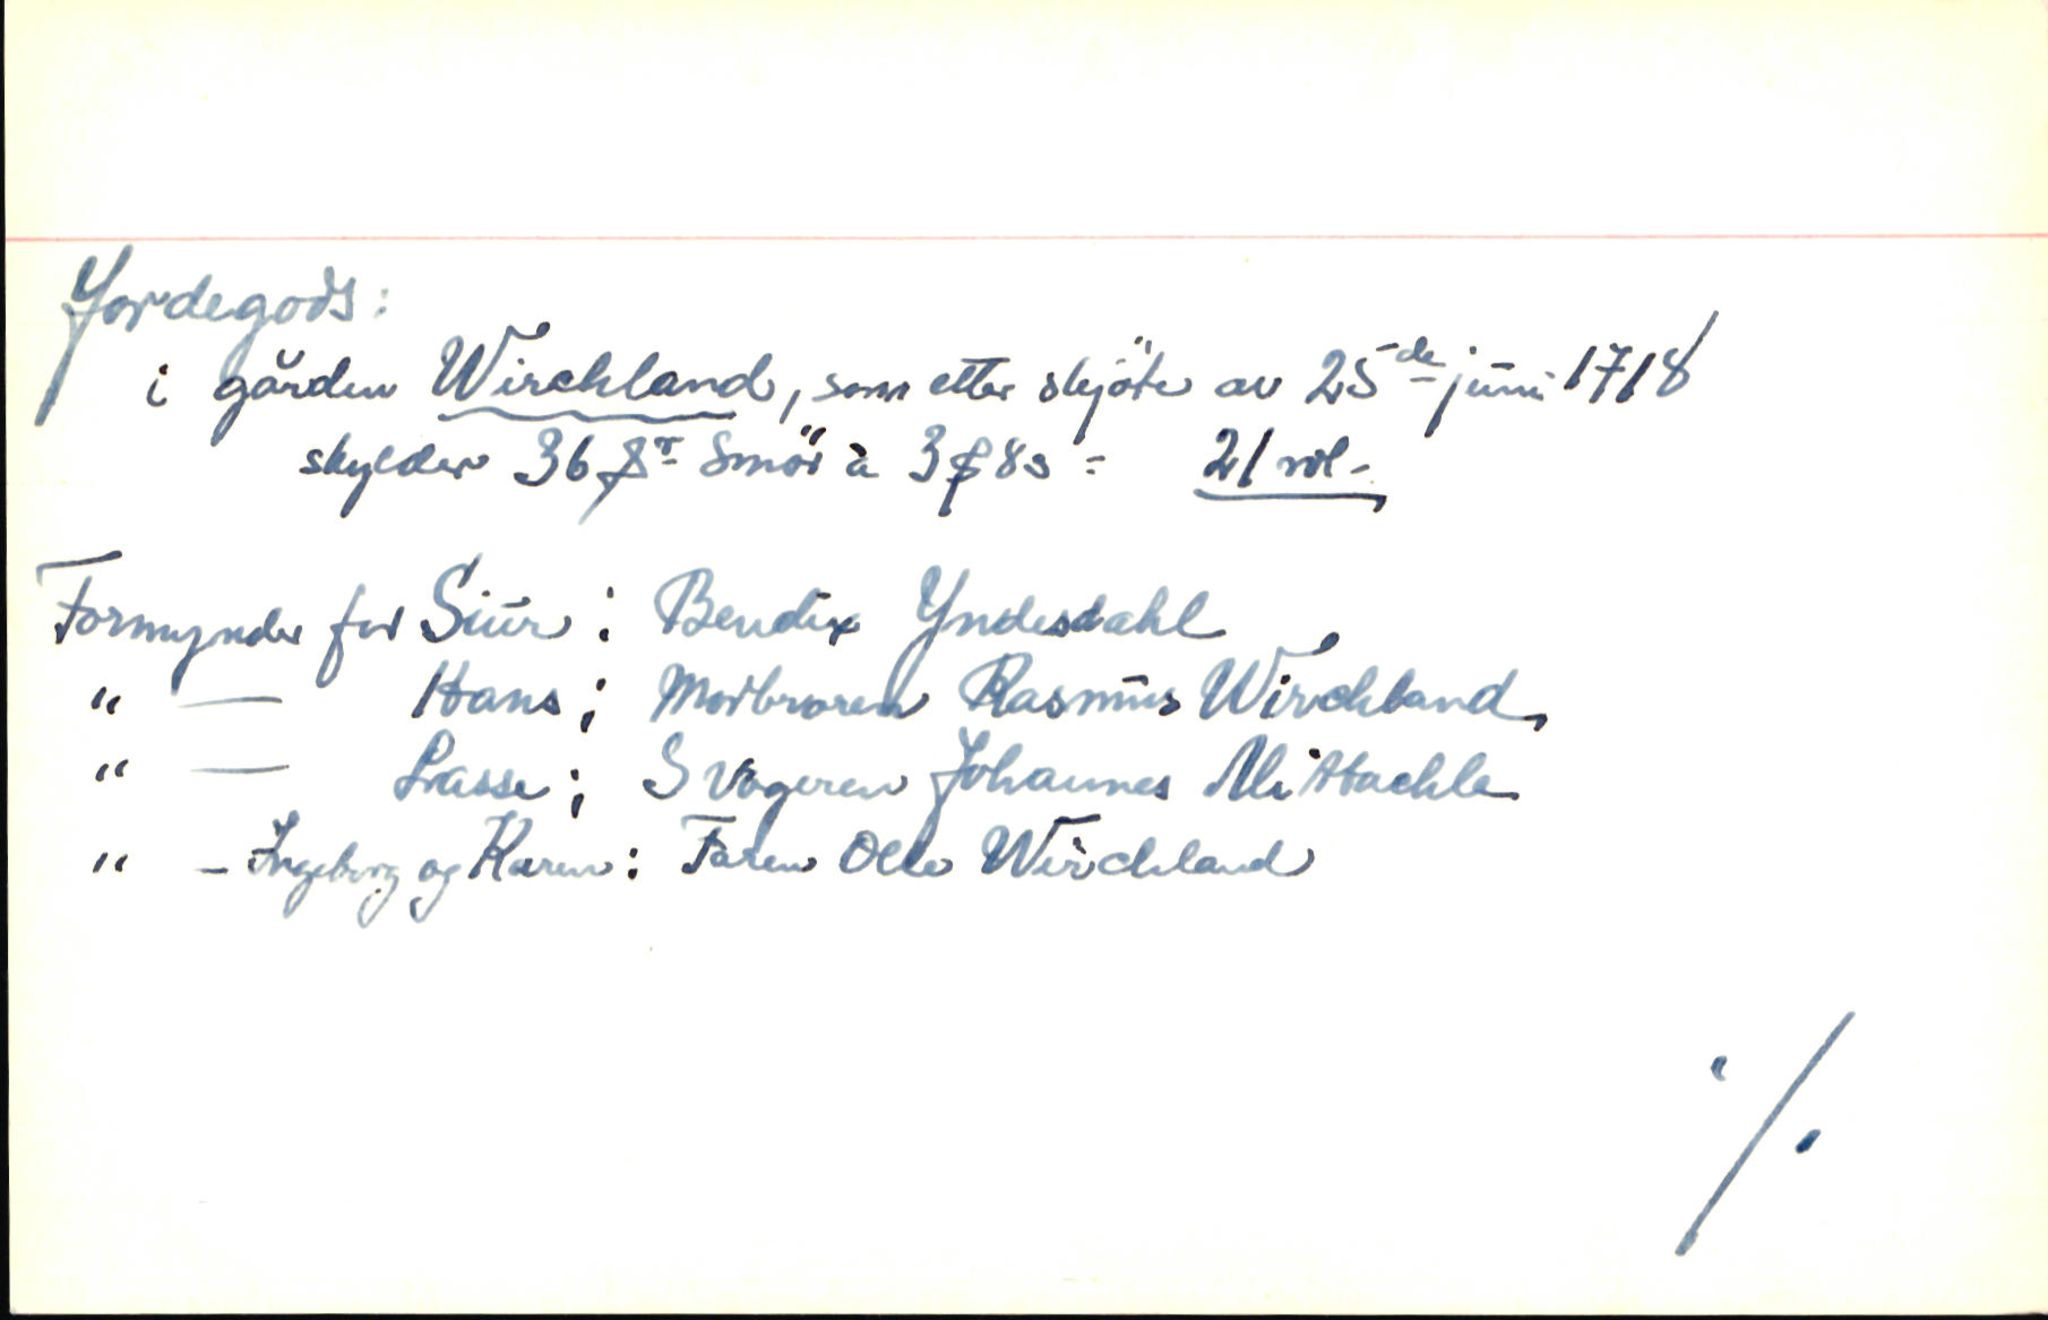 Jordegods:
i gården Wirchland, som etter skjöte av 25de juni 1718
skylder 36 ℔r Smör à 3 ß 8 s = 21 rdl -
Formynder for Siur: Bendix Yndesdahl
" — Hans; Morbroren Rasmus Wirchland,
" — Lasse; Svogeren Johannes Mittachle
" - Ingeborg og Karen: Faren Olle Wirchland
./.